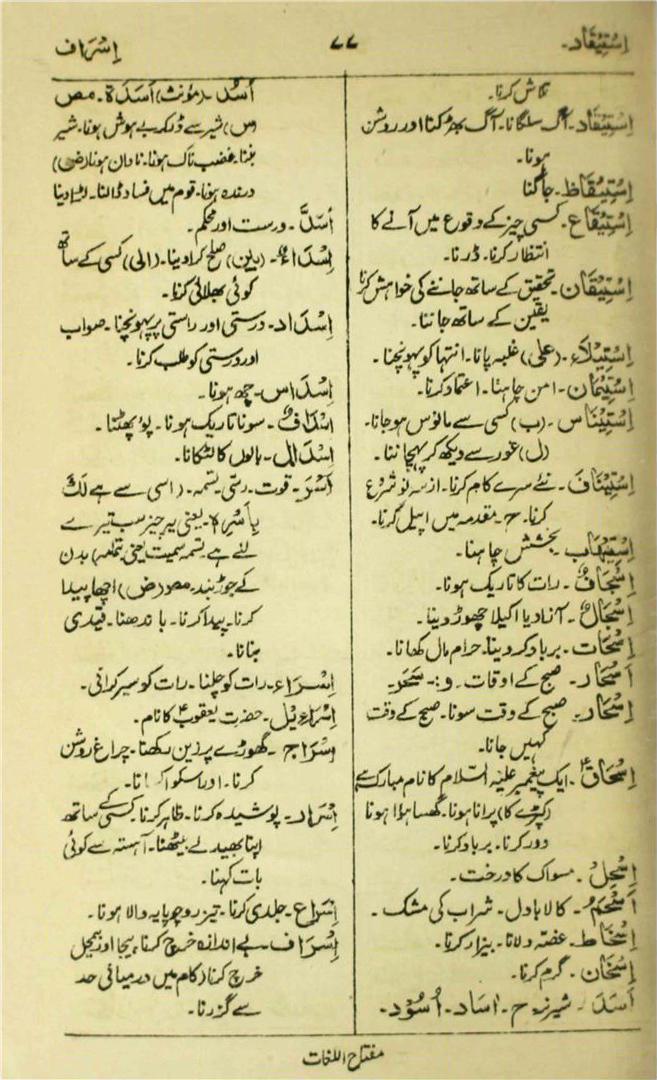 اِسْتِیْقَاد۔
۷۷
اِسْرَاف
تلاش کرنا۔
اِسْتِیْقَاد۔ آگ سلگانا۔ آگ بھڑکنا اور روشن
ہونا۔
اِسْتِیْقَاظ۔ جاگنا
اِسْتِیْقَاع۔ کسی چیز کے وقوع میں آنے کا
انتظار کرنا۔ ڈرنا۔
اِسْتِیْقَان۔ تحقیق کے ساتھ جاننے کی خواہش کرنا
یقین کے ساتھ جاننا۔
اِسْتِیْلَاء۔ (علی) غلبہ پانا۔ انتہا کو پہونچنا۔
اِسْتِیْمَان۔ امن چاہنا۔ اعتماد کرنا۔
اِسْتِیْنَاس۔ (ب) کسی سے مانوس ہوجانا۔
(ل) غور سے دیکھ کر پہچاننا۔
اِسْتِیْنَاف۔ نئے سرے کام کرنا۔ از سر نو شروع
کرنا۔ ح۔ مقدمہ میں اپیل کرنا۔
اِسْتِیْهَاب۔ بخشش چاہنا۔
اِسْجَاف۔ رات کا تاریک ہونا۔
اِسْجَال۔ آزاد یا اکیلا چھوڑ دینا۔
اِسْحَات۔ برباد کر دینا۔ حرام مال کھانا۔
اَسْحَار۔ صبح کے اوقات۔ و:۔ سَحَر۔
اِسْحَار۔ صبح کے وقت سونا۔ صبح کے وقت
کہیں جانا۔
اِسْحَاق۔ ایک پیغمبر علیہ السلام کا نام مبارک ہے
(کپڑے کا) پرانا ہونا۔ گھسا ہؤا ہونا
دور کرنا۔ برباد کرنا۔
اِسْحِل۔ مسواک کا درخت۔
اَسْحَم۔ کالا بادل۔ شراب کی مشک۔
اِسْخَاط۔ غصّہ دلانا۔ بیزار کرنا۔
اِسْخَان۔ گرم کرنا۔
اَسَد۔ شیر نر۔ ح۔ اٰسَاد۔ اُسُوْد۔
اَسَد۔ (مؤنث) اَسَدَۃ۔ مص
(س) شیر سے ڈر کر بے ہوش ہونا۔ شیر
بننا۔ غضب ناک ہونا۔ نادان ہونا (ض)
درندہ ہونا۔ قوم میں فساد ڈالنا۔ لڑا دینا
اَسَدّ۔ درست اور محکم۔
اِسْدَاء۔ (بین) صلح کرا دینا۔ (الی) کسی کے ساتھ
کوئی بھلائی کرنا۔
اِسْدَاد۔ درستی اور راستی پر پہونچنا۔ صواب
اور درستی کو طلب کرنا۔
اِسْدَاس۔ چھ ہونا۔
اِسْدَاف۔ سونا تاریک ہونا۔ پَو پھٹنا۔
اِسْدَال۔ بالوں کا لٹکانا۔
اَسْر۔ قوت۔ رسّی۔ تسمہ۔ (اسی سے ہے لَكَ
بِاَسْرِہٖ۔ یعنی یہ چیز سب تیرے
لئے ہے تسمہ سمیت یعنی تمام) بدن
کے جوڑ بند۔ مص (ض) اچھا پیدا
کرنا۔ پیدا کرنا۔ باندھنا۔ قیدی
بنانا۔
اِسْرَاء۔ رات کو چلنا۔ رات کو سیر کرانی۔
اِسْرَاءِیْل۔ حضرت یعقوبؑ کا نام۔
اِسْرَاج۔ گھوڑے پر زین رکھنا۔ چراغ روشن
کرنا۔
اِسْرَار۔ پوشیدہ کرنا۔ ظاہر کرنا۔ کسی کے ساتھ
اپنا بھید لے بیٹھنا۔ آہستہ سے کوئی
بات کہنا۔
اِسْرَاع۔ جلدی کرنا۔ تیز رو چوپایہ والا ہونا۔
اِسْرَاف۔ بے اندازہ خرچ کرنا، بیجا اور بیمحل
خرچ کرنا (کام میں درمیانی حد
سے گزرنا۔
مفتاح اللغات